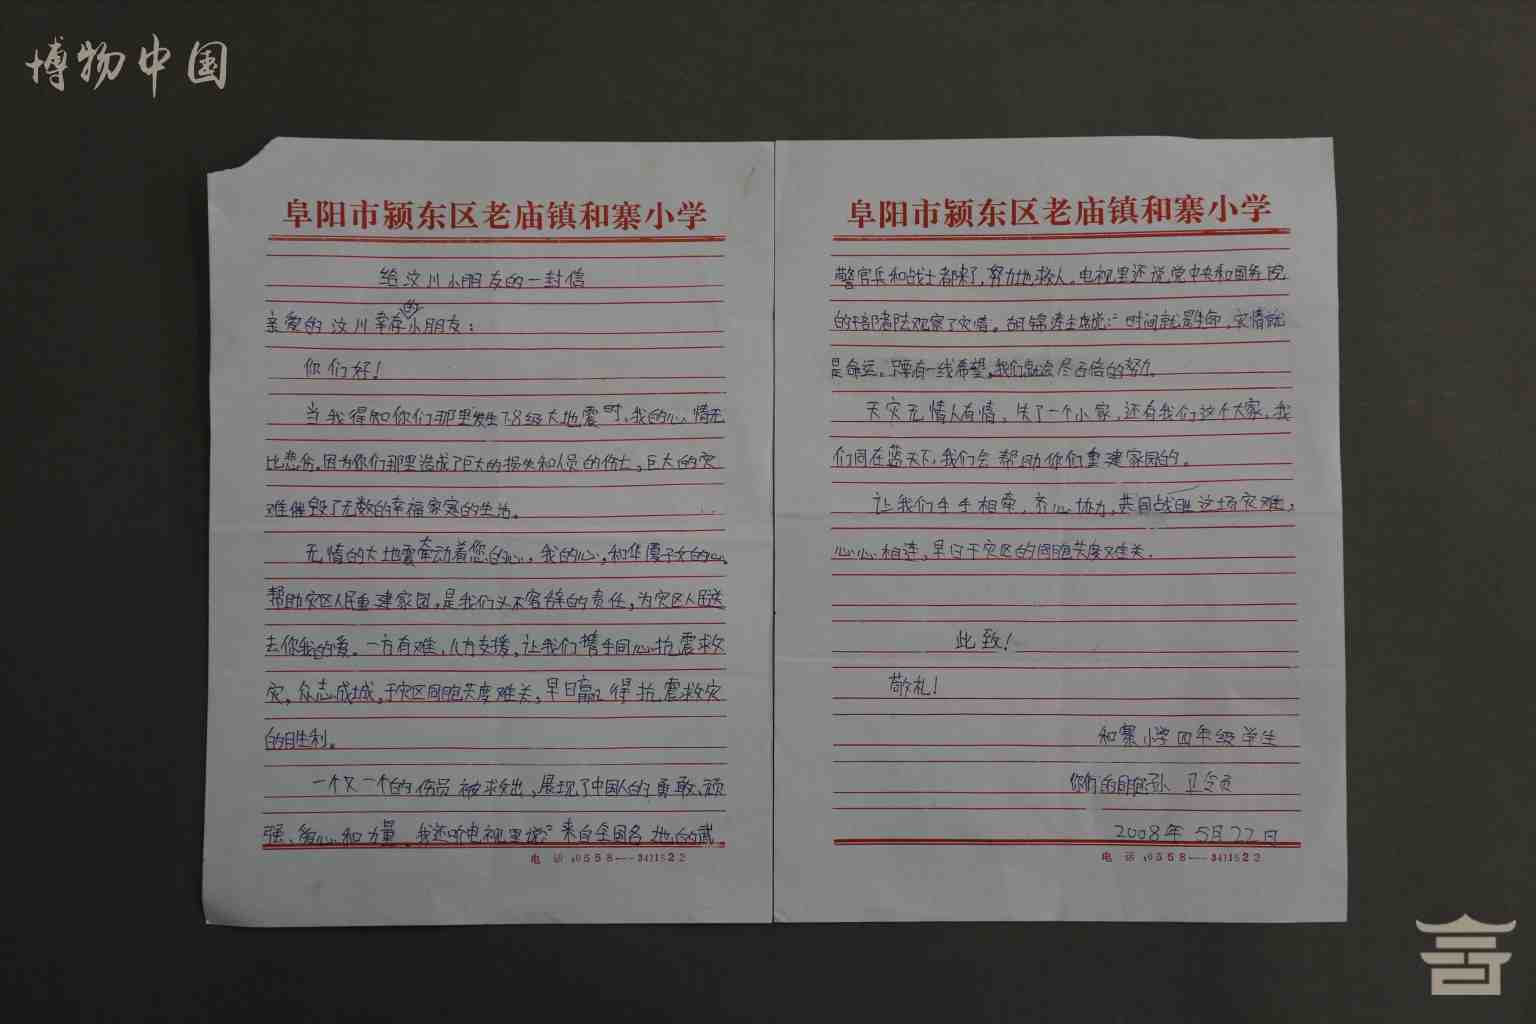 博物中国
阜阳市颍东区老庙镇和寨小学
给汶川小朋友的一封信
亲爱的汶川幸存的小朋友：
你们好！
当我得知你们那里发生7.8级大地震时，我的心情无
比悲伤。因为你们那里造成了巨大的损失和人员的伤亡，巨大的灾
难催毁了无数的幸福家庭的生活。
无情的大地震牵动着您的心，我的心，和华夏子女的心。
帮助灾区人民重建家园，是我们义不容辞的责任，为灾区人民送
去你我的爱。一方有难，八方支援，让我们携手同心抗震救
灾，众志成城，于灾区同胞共度难关，早日赢得抗震救灾
的胜利。
一个又一个的伤员被求出，展现了中国人的勇敢、顽
强、爱心和力量。我还听电视里说：来自全国各地的武
电 话：0558——3411522
阜阳市颍东区老庙镇和寨小学
警官兵和战士都来了，努力地救人。电视里还说党中央和国务院
的干部都去观察了灾情。胡锦涛主席说：“时间就是生命，灾情就
是命运。只要有一线希望，我们就会尽百倍的努力。
天灾无情人有情，失了一个小家，还有我们这个大家，我
们同在蓝天下，我们会帮助你们重建家园的。
让我们手手相牵，齐心协力，共同战胜这场灾难，
心心相连，早日于灾区的同胞共度难关。
此致！
敬礼！
和寨小学四年级学生
你们的朋友孙卫
2008年5月22日
电 话：0558——3411522